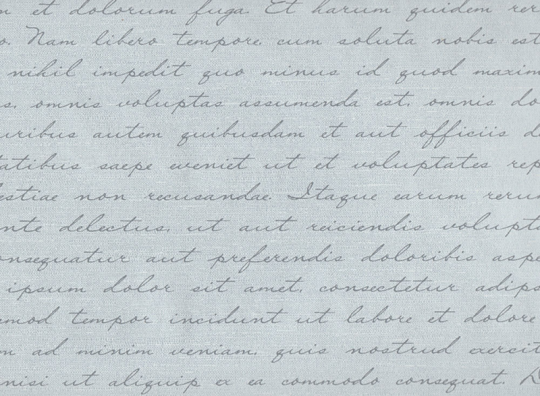 et dolorum fuga. Et harum quidem rer
o. Nam libero tempore, cum soluta nobis est
nihil impedit quo minus id quod maxim
s, omnis voluptas assumenda est, omnis do
uribus autem quibusdam et aut officiis d
tatibus saepe eveniet ut et voluptates rep
estiae non recusandae. Itaque earum rerum
nte delectus, ut aut reiciendis volupta
onsequatur aut preferendis doloribis aspe
ipsum dolor sit amet, consectetur adips
smod tempor incidunt ut labore et dolore
m ad minim veniam, quis nostrud exercit
nisi ut aliquip ex ea commodo consequat. D